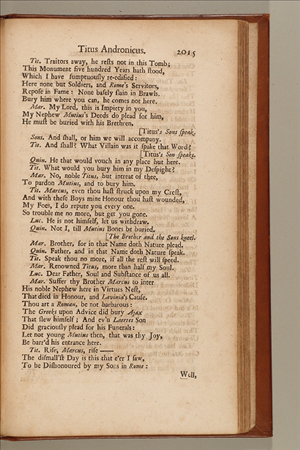 Titus Andronicus. 2015
Tit. Traitors away, he rests not in this Tomb;
This Monument five hundred Years hath stood,
Which I have sumptuously re-edified:
Here none but Soldiers, and Rome's Servitors,
Repose in Fame: None basely slain in Brawls.
Bury him where you can, he comes not here.
Mar. My Lord, this is Impiety in you,
My Nephew Mutius's Deeds do plead for him,
He must be buried with his Brethren.
[Titus's Sons speak.
Sons. And shall, or him we will accompany.
Tit. And shall! What Villain was it spake that Word?
[Titus's Son speaks.
Quin. He that would vouch in any place but here.
Tit. What would you bury him in my Despight?
Mar. No, noble Titus, but intreat of thee,
To pardon Mutius, and to bury him.
Tit. Marcus, even thou hast struck upon my Crest,
And with these Boys mine Honour thou hast wounded,
My Foes, I do repute you every one.
So trouble me no more, but get you gone.
Luc. He is not himself, let us withdraw.
Quin. Not I, till Mutius Bones be buried.
[The Brother and the Sons kneel.
Mar. Brother, for in that Name doth Nature plead.
Quin. Father, and in that Name doth Nature speak.
Tit. Speak thou no more, if all the rest will speed.
Mar. Renowned Titus, more than half my Soul.
Luc. Dear Father, Soul and Substance of us all.
Mar. Suffer thy Brother Marcus to inter
His noble Nephew here in Virtues Nest,
That died in Honour, and Lavinia's Cause.
Thou art a Roman, be not barbarous:
The Greeks upon Advice did bury Ajax
That slew himself; And ev'n Laertes Son
Did graciously plead for his Funerals:
Let not young Mutius then, that was thy Joy,
Be barr'd his entrance here.
Tit. Rise, Marcus, rise ——
The dismall'st Day is this that e'er I saw,
To be Dishonoured by my Sons in Rome:
Well,